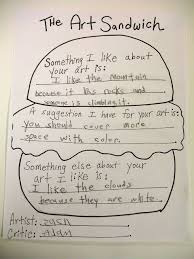 The Art Sandwich
Something I like about
your art is:
I like the mountain
because it has rocks and
someone is climbing it.
A suggestion I have for your art is:
you should cover more
space with color.
Something else about your
art I like is:
I like the clouds
because they are white.
Artist:
Critic: Adam